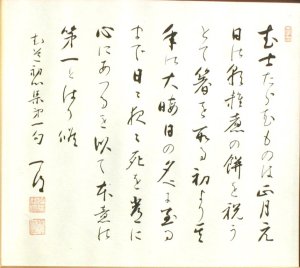 武士たらむものは正月元
日の朝雑煮の餅を祝う
とて箸を取る初より其
年の大晦日の夕べに至る
まで日々夜々死を常に
心にあつるを以て本意の
第一と候
初心集第一句